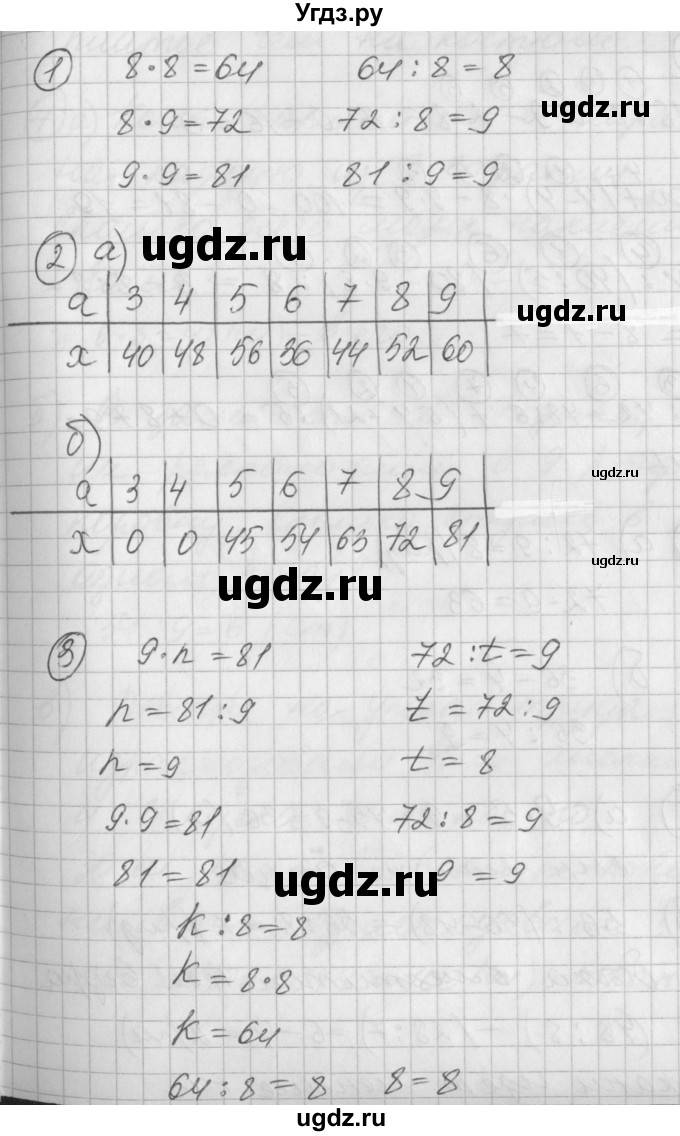 Угдз.ру
1 8·8=64 64:8=8
ugdz.ru
8·9=72 72:8=9
9·9=81 81:9=9
2 а)
ugdz.ru
а 3 4 5 6 7 8 9
ugdz.ru
х 40 48 56 36 44 52 60
б)
ugdz.ru
а 3 4 5 6 7 8 9
х 0 0 45 54 63 72 81
ugdz.ru
ugdz.ru
3 9·n=81 72:t=9
n=81:9 t=72:9
n=9 t=8
9·9=81 72:8=9
81=81 9=9
ugdz.ru
k:8=8
k=8·8
k=64
64:8=8 8=8
ugdz.ru